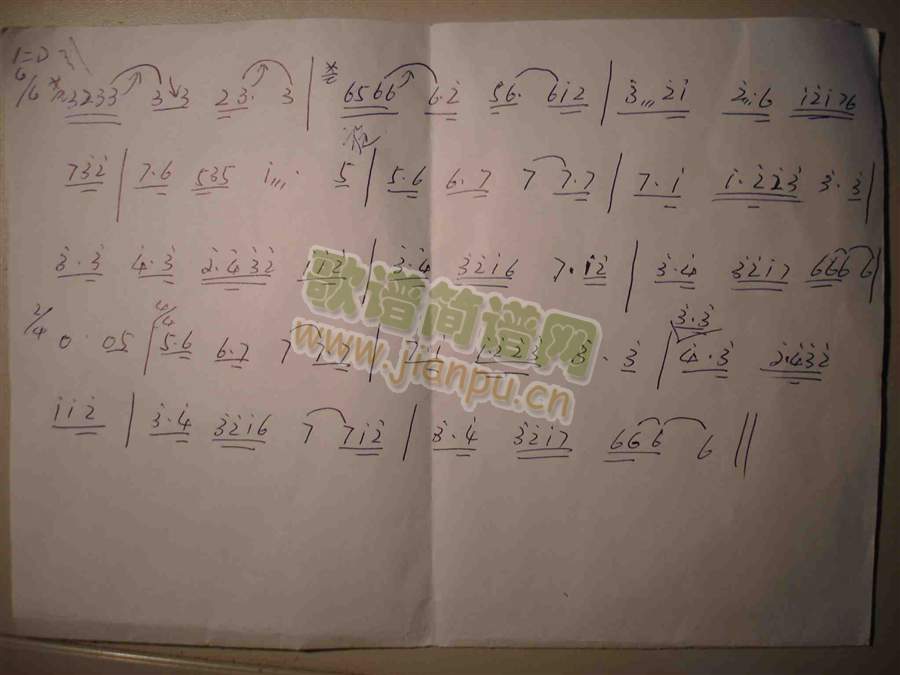 1=D
4/4 3233 3 3 23· 3 | 6566 6·2̇ 56· 6i̇2̇ | 3̇ 2̇i̇ 2̇·6 i̇2̇i̇76
73̇2̇ | 7·6 535 i̇ · 5 | 5·6 6·7 7 7·7 | 7·i̇ i̇·2̇2̇3̇ 3̇·3̇ |
3̇·3̇ 4̇·3̇ 2̇·4̇3̇2̇ i̇i̇2̇ | 3̇·4̇ 3̇2̇i̇6 7·i̇2̇ | 3̇·4̇ 3̇2̇i̇7 666 6 |
2/4 0·05 | 4/4 5·6 6·7 7 7·7 | 7·i̇ i̇2̇2̇3̇ 3̇·3̇ | 3̇·3̇ 4̇·3̇ 2̇·4̇3̇2̇
i̇i̇2̇ | 3̇·4̇ 3̇2̇i̇6 7 7i̇2̇ | 3̇·4̇ 3̇2̇i̇7 666 6 ||
歌谱简谱网
www.jianpu.cn